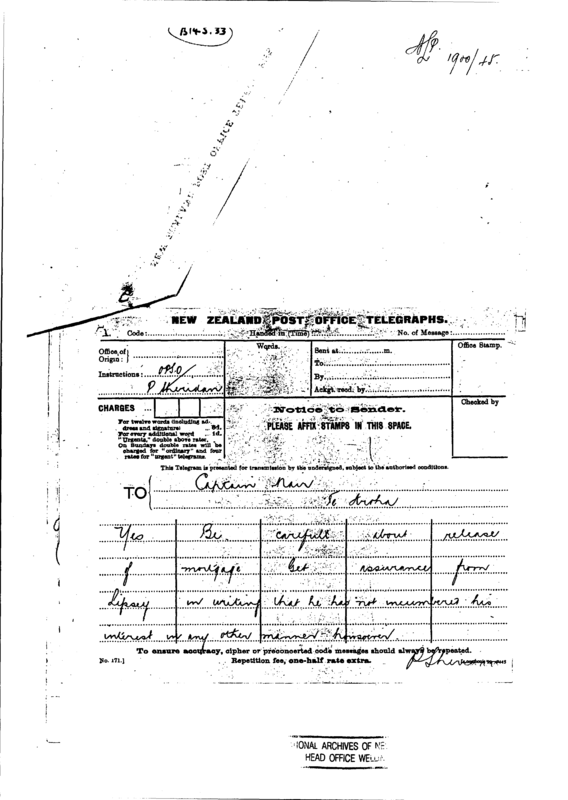 B14-S.33
1900/45.
NEW ZEALAND POST OFFICE TELEGRAPHS.
Code: Handed in (Time) No. of Message:
Office of Origin:
Words.
Sent at m.
Office Stamp.
To
Instructions: OPSO
By
P Sheridan
Ackgt. recd. by
CHARGES
Notice to Sender.
Checked by
PLEASE AFFIX STAMPS IN THIS SPACE.
For twelve words (including address and signature) 6d.
For every additional word 1d.
"Urgents," double above rates.
On Sundays double rates will be
charged for "ordinary" and four
rates for "urgent" telegrams.
This Telegram is presented for transmission by the undersigned, subject to the authorised conditions.
TO Captain Mair
Te Aroha
Yes Be carefull about release
of mortgage Get assurance from
Lipsey in writing that he has not incumbered his
interest in any other manner howsoever
To ensure accuracy, cipher or preconcerted code messages should always be repeated.
[No. 171.] Repetition fee, one-half rate extra.
IONAL ARCHIVES OF NE
HEAD OFFICE WELL